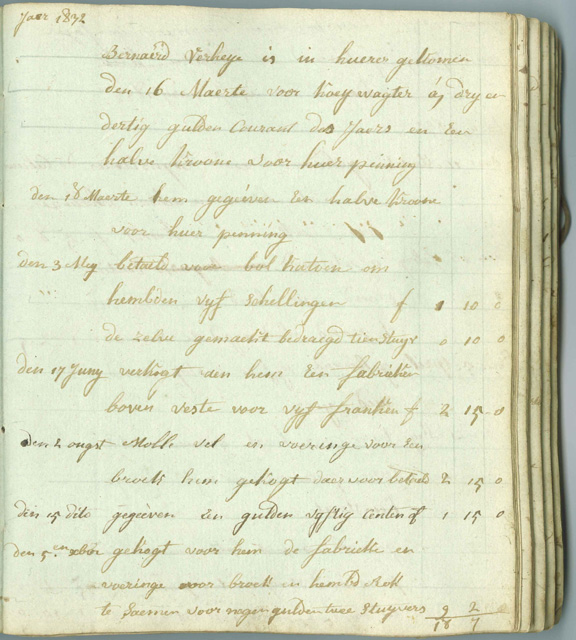 Jaer 1832
Bernaerd Verheye is in huere gekomen
den 16 Maerte voor koeywagter á, dry en
dertig gulden Courant das Jaers en Een
halve kroone voor huer pinning
den 18 Maerte hem gegéven Een halve kroone
voor huer pinning
den 3 Mey betaeld voor katoen om
hembden vyf schellingen f 1 10 0
de zelve gemaekt bedraegd tien stuyv 0 10 0
den 17 Juny verkogt aen hem Een fabrieken
boven veste voor vyf franken f 2 15 0
den 2 ougst Molle vel en voeringe voor Een
broek hem gekogt daer voor betaeld 2 15 0
den 15 dito gegéven Een gulden vyftig centen f 1 15 0
den 5 en xber gekogt voor hem de fabrieke en
voeringe voor broek en hembd Rok
te saemen voor negen gulden twee stuyvers 9 2
18 7